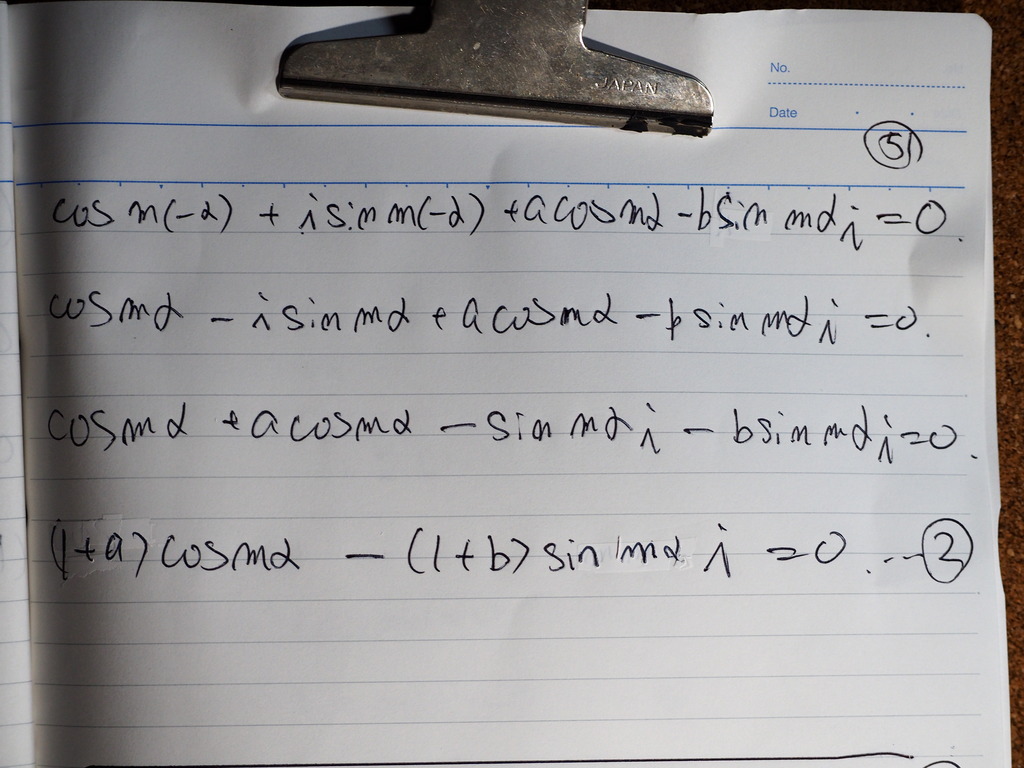 JAPAN
No.
Date
51
cos m(-α) + i sin m(-α) + a cos mα - b sin mα i = 0.
cos mα - i sin mα + a cos mα - b sin mα i = 0.
cos mα + a cos mα - sin mα i - b sin mα i = 0.
(1+a) cos mα - (1+b) sin mα i = 0. -- ②